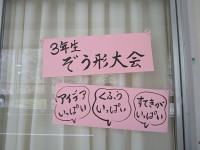 3年生
ぞう形大会
アイデア
いっぱい
くふう
いっぱい
すてきが
いっぱい